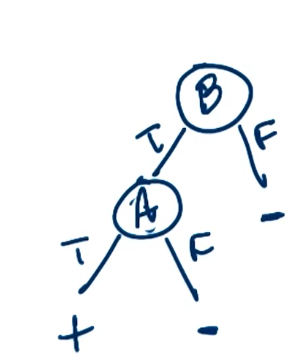 B
T F
A -
T F
+ -